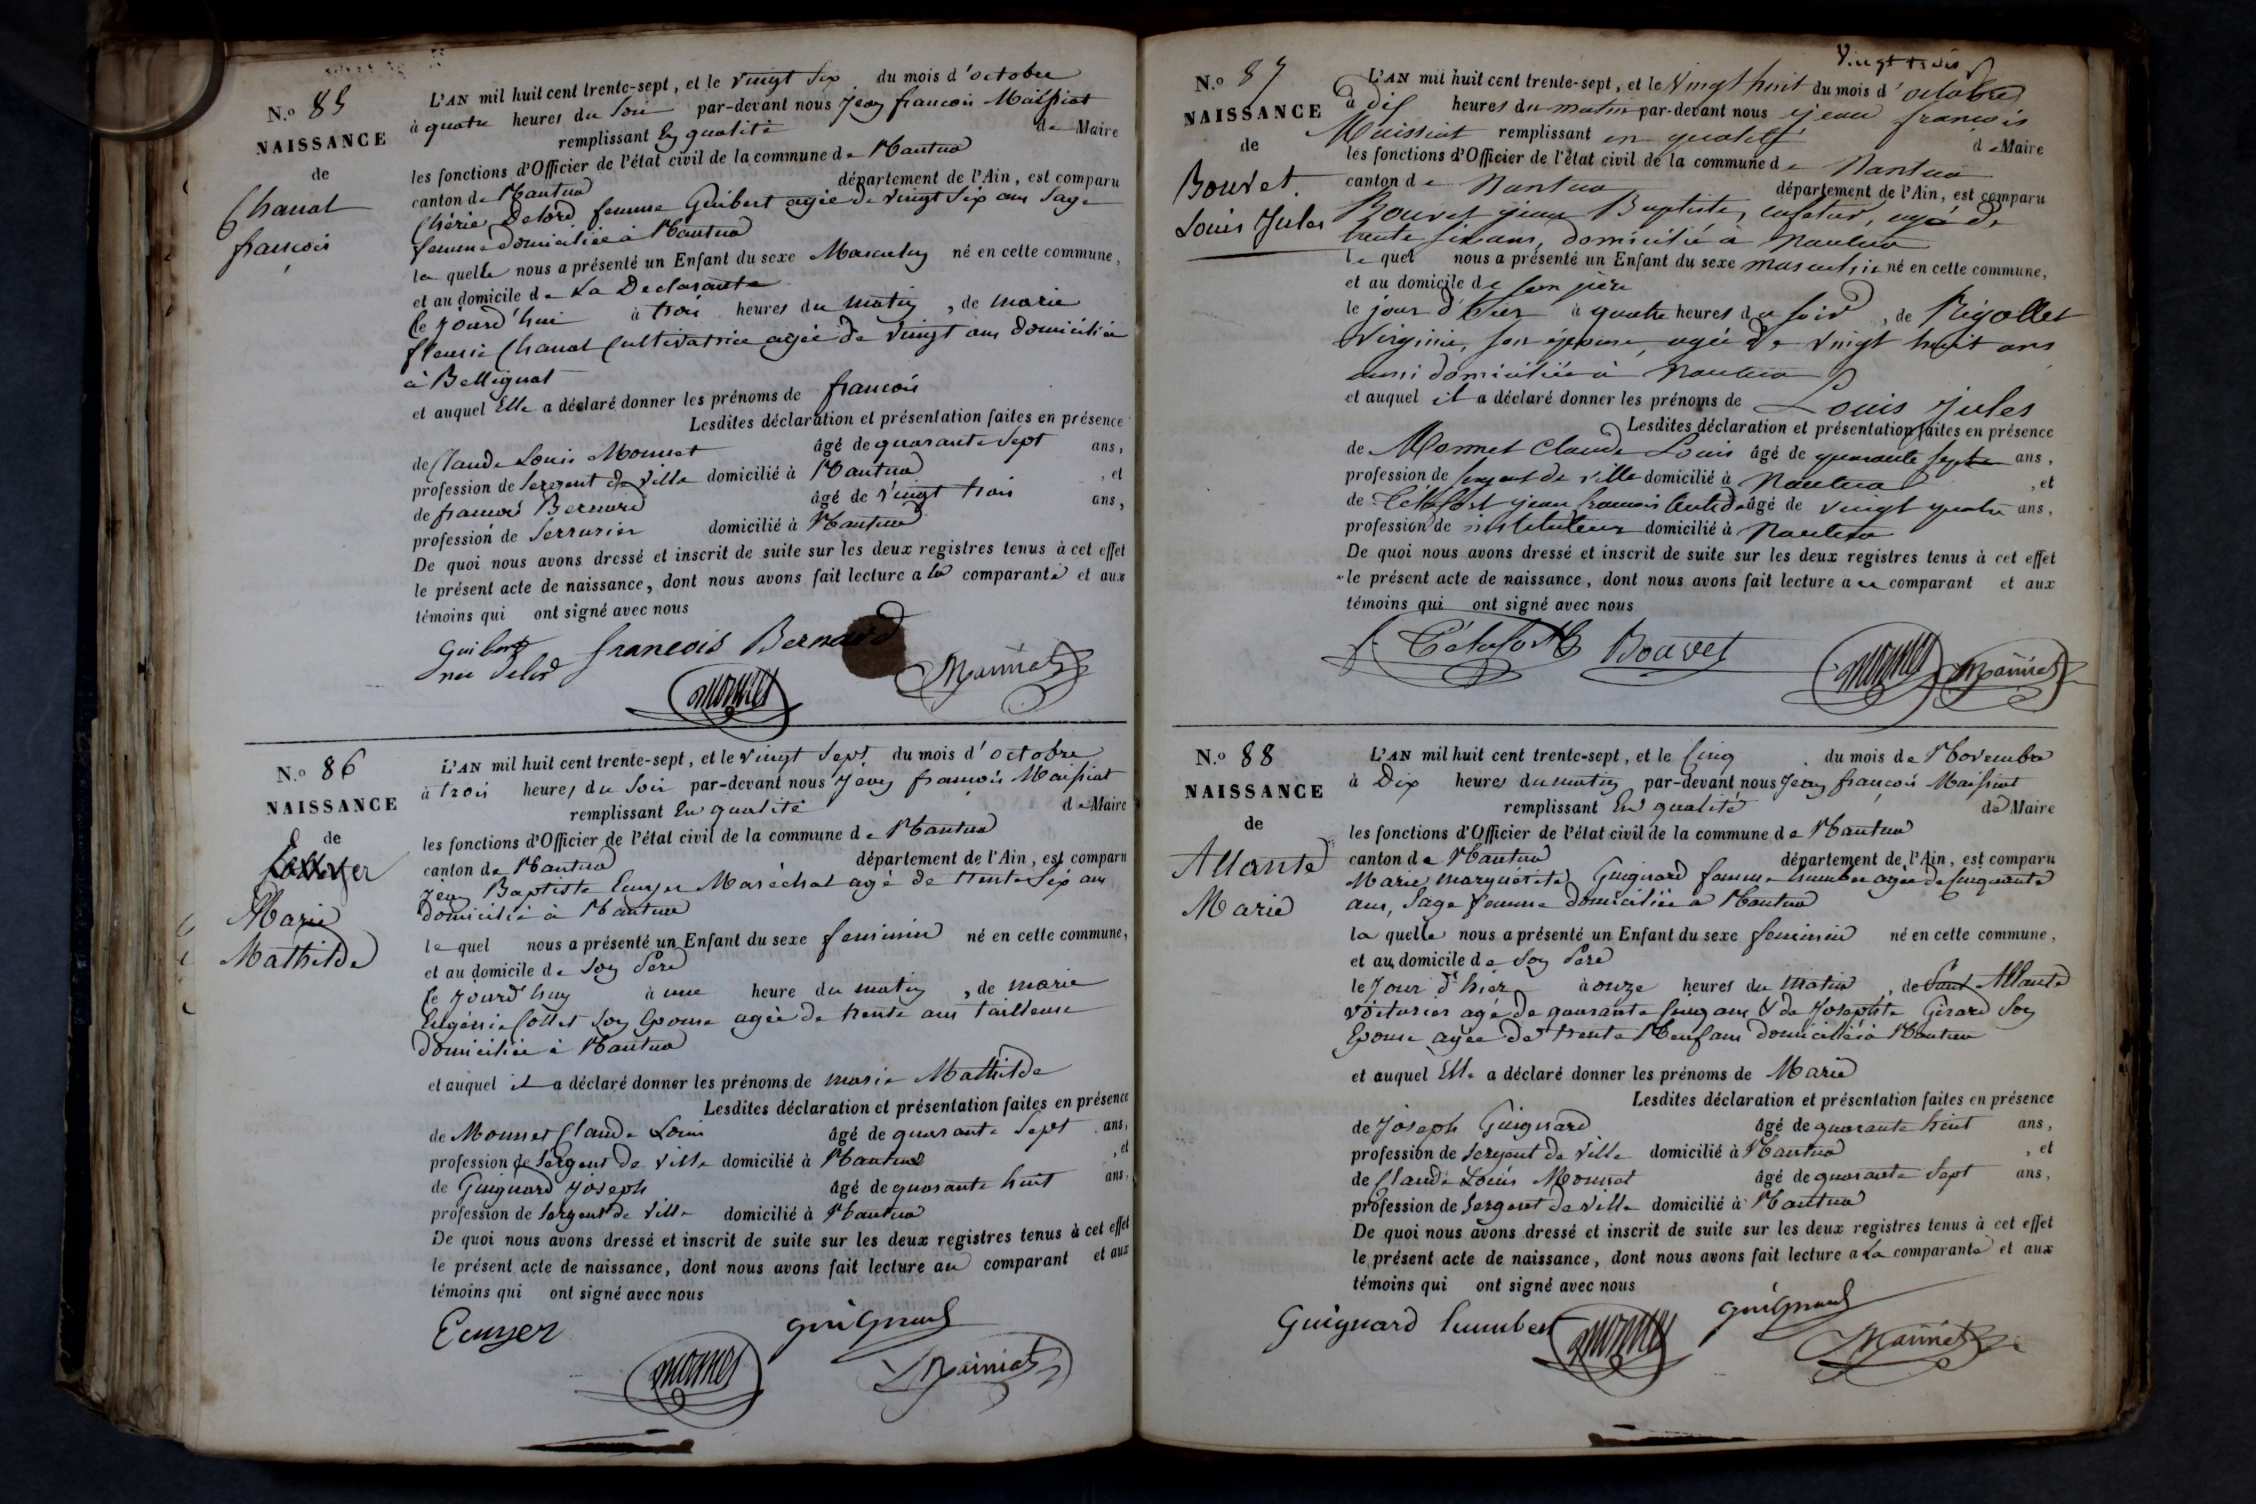 N.º 85
NAISSANCE
de
Chanal
françois
L'AN mil huit cent trente-sept, et le vingt Six du mois d'octobre
à quatre heures du Soir par-devant nous Jean françois Maissiat
remplissant En qualité de Maire
les fonctions d'Officier de l'état civil de la commune de Nantua
canton de Nantua département de l'Ain, est comparu
Chérie Delord femme Guibert agée de vingt Six ans Sage
femme domiciliée à Nantua
la quelle nous a présenté un Enfant du sexe Masculin né en cette commune,
et au domicile de La Declarante
le jourd'hui à trois heures du matin, de marie
fleurie Chanal Cultivatrice agée de vingt ans domiciliée
à Bellignat
et auquel Elle a déclaré donner les prénoms de françois
Lesdites déclaration et présentation faites en présence
de Claude Louis Monnet âgé de quarante Sept ans,
profession de Sergent de Ville domicilié à Nantua, et
de françois Bernard âgé de vingt trois ans,
profession de Serrurier domicilié à Nantua
De quoi nous avons dressé et inscrit de suite sur les deux registres tenus à cet effet
le présent acte de naissance, dont nous avons fait lecture a la comparante et aux
témoins qui ont signé avec nous
Guibert
née Delord
françois Bernard
Monnet
Maissiat
N.º 86
NAISSANCE
de
Ecuyer
Marie
Mathilde
L'AN mil huit cent trente-sept, et le vingt Sept du mois d'octobre
à trois heures du Soir par-devant nous Jean françois Maissiat
remplissant En qualité de Maire
les fonctions d'Officier de l'état civil de la commune de Nantua
canton de Nantua département de l'Ain, est comparu
Jean Baptiste Ecuyer Maréchal agé de trente Six ans
domicilié à Nantua
le quel nous a présenté un Enfant du sexe feminin né en cette commune,
et au domicile de Son Père
le jourd'huy à une heure du matin, de marie
Eugénie Collet Son Epouse agée de trente ans tailleuse
domiciliée à Nantua
et auquel il a déclaré donner les prénoms de marie Mathilde
Lesdites déclaration et présentation faites en présence
de Monnet Claude Louis âgé de quarante Sept ans,
profession de Sergent de Ville domicilié à Nantua, et
de Guignard Joseph âgé de quarante huit ans,
profession de Sergent de Ville domicilié à Nantua
De quoi nous avons dressé et inscrit de suite sur les deux registres tenus à cet effet
le présent acte de naissance, dont nous avons fait lecture au comparant et aux
témoins qui ont signé avec nous
Ecuyer
guignard
Monnet
Maissiat
Vingt trois
N.º 87
NAISSANCE
de
Bouvet
Louis Jules
L'AN mil huit cent trente-sept, et le Vingt huit du mois d'octobre
à dix heures du matin par-devant nous jean françois
Maissiat remplissant en qualité de Maire
les fonctions d'Officier de l'état civil de la commune de Nantua
canton de Nantua département de l'Ain, est comparu
Bouvet jean Baptiste, cafetier, agé de
trente six ans, domicilié à Nantua
le quel nous a présenté un Enfant du sexe masculin né en cette commune,
et au domicile de son père
le jour d'hier à quatre heures du soir, de Rigollet
Virginie, son épouse, agée de vingt huit ans
aussi domiciliée à Nantua
et auquel il a déclaré donner les prénoms de Louis Jules
Lesdites déclaration et présentation faites en présence
de Monnet Claude Louis âgé de quarante sept ans,
profession de sergent de ville domicilié à Nantua, et
de jean françois âgé de vingt quatre ans,
profession de instituteur domicilié à Nantua
De quoi nous avons dressé et inscrit de suite sur les deux registres tenus à cet effet
le présent acte de naissance, dont nous avons fait lecture au comparant et aux
témoins qui ont signé avec nous
Bouvet
Monnet
Maissiat
N.º 88
NAISSANCE
de
Allante
Marie
L'AN mil huit cent trente-sept, et le Cinq du mois de Novembre
à Dix heures du matin par-devant nous Jean françois Maissiat
remplissant En qualité de Maire
les fonctions d'Officier de l'état civil de la commune de Nantua
canton de Nantua département de l'Ain, est comparu
Marie marguerite Guignard femme humbert agée de Cinquante
ans, Sage femme domiciliée à Nantua
la quelle nous a présenté un Enfant du sexe feminin né en cette commune,
et au domicile de Son Père
le Jour d'hier à onze heures du Matin, de Allante
Voiturier agé de quarante Cinq ans & de Josephte Gérard Son
Epouse agée de trente Neuf ans domiciliés à Nantua
et auquel Elle a déclaré donner les prénoms de Marie
Lesdites déclaration et présentation faites en présence
de Joseph Guignard âgé de quarante huit ans,
profession de Sergent de Ville domicilié à Nantua, et
de Claude Louis Monnet âgé de quarante Sept ans,
profession de Sergent de Ville domicilié à Nantua
De quoi nous avons dressé et inscrit de suite sur les deux registres tenus à cet effet
le présent acte de naissance, dont nous avons fait lecture a La comparante et aux
témoins qui ont signé avec nous
Guignard humbert
Monnet
guignard
Maissiat